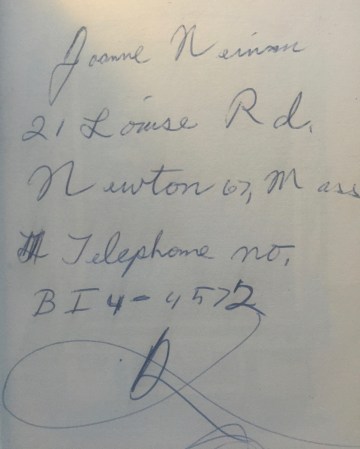 Joanne Neiman
21 Louise Rd.
Newton 67, Mass
Telephone no.
BI4-4572